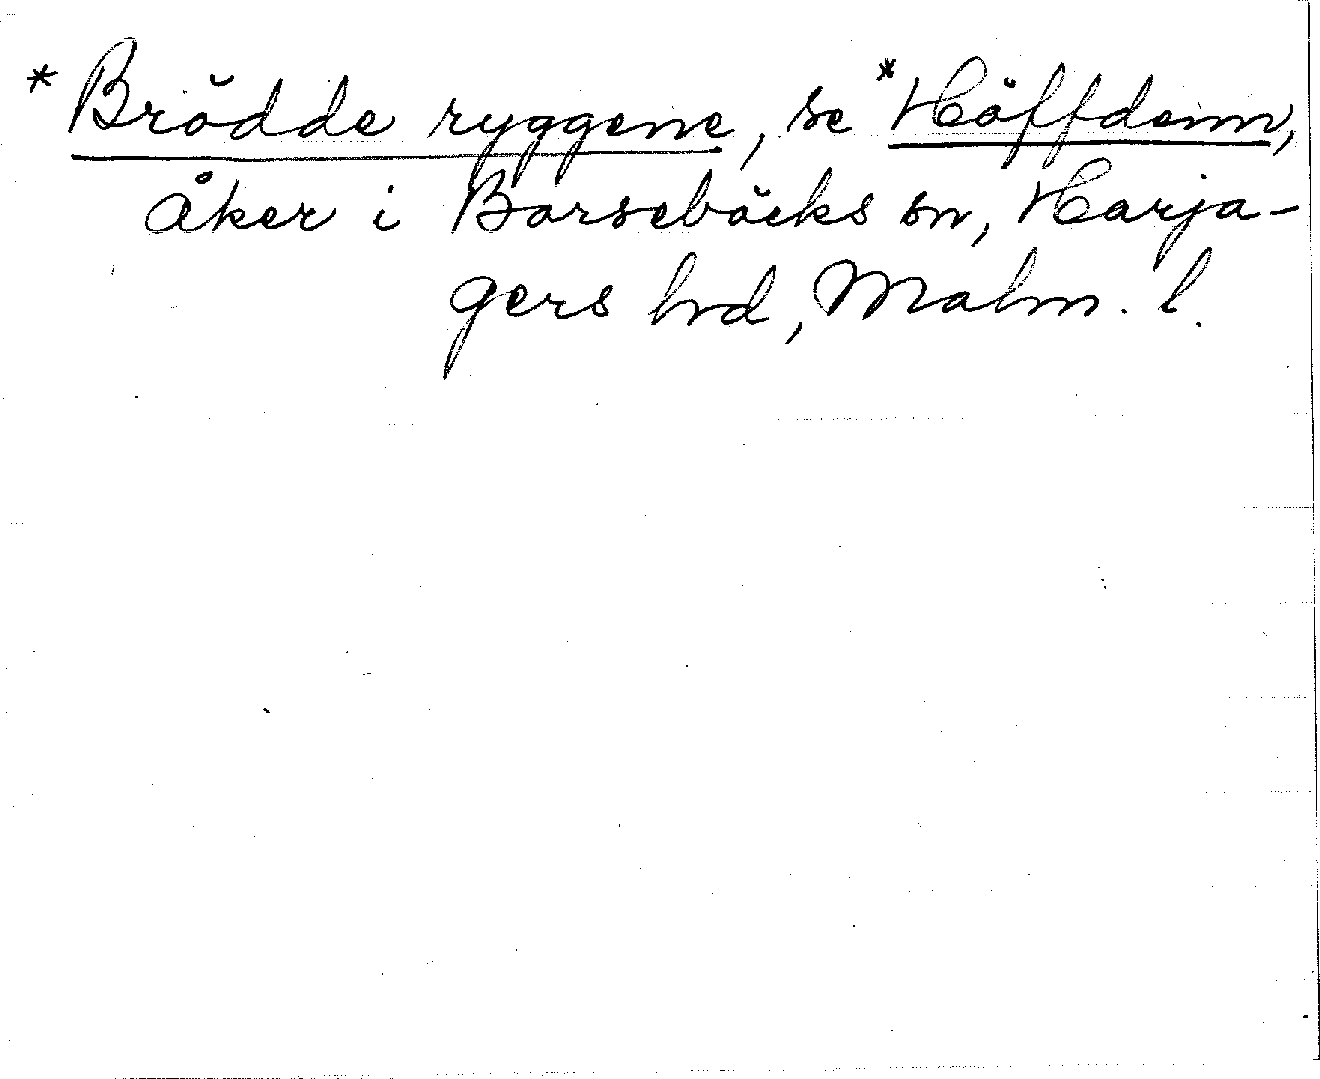 *Brödde ryggene, se *Höffdenn,
åker i Barsebäcks sn, Harja-
gers hd, Malm. l.